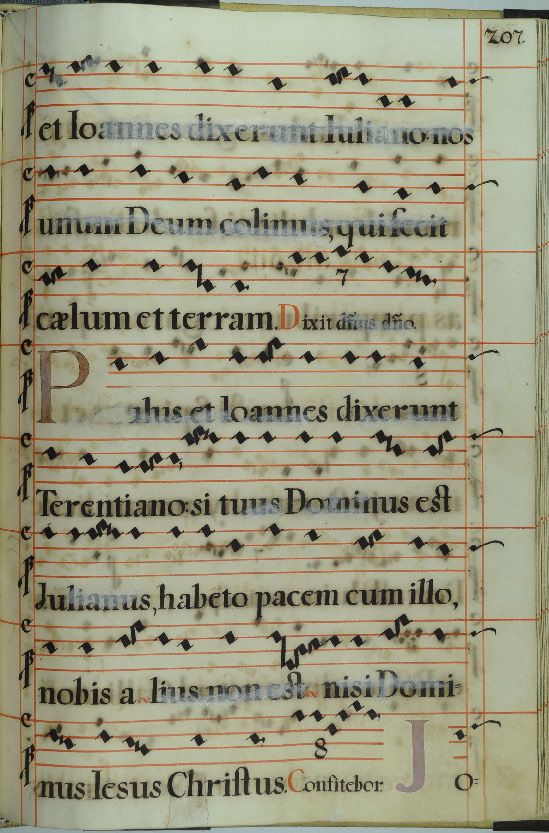 207.
et Ioannes dixerunt Iuliano: nos
unum Deum colimus, qui fecit
cælum et terram. Dixit dñus dño.
7
Paulus et Ioannes dixerunt
Terentiano: si tuus Dominus est
Julianus, habeto pacem cum illo,
nobis alius non est nisi Domi=
nus Iesus Christus. Confitebor. JO=
8